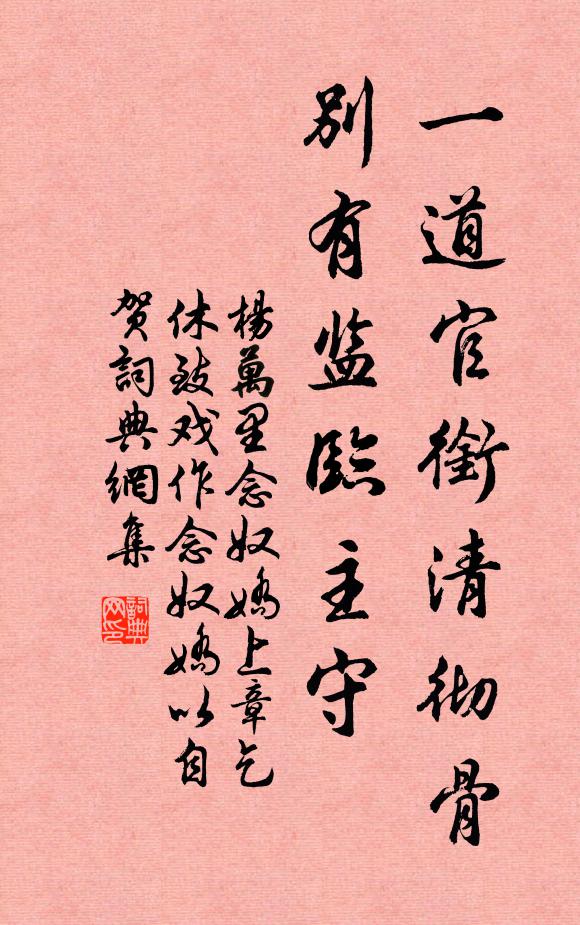 一道官銜清彻骨
別有监臨主守
楊萬里念奴嬌上章乞
休致戏作念奴嬌以自
贺詞典網集
詞典网印